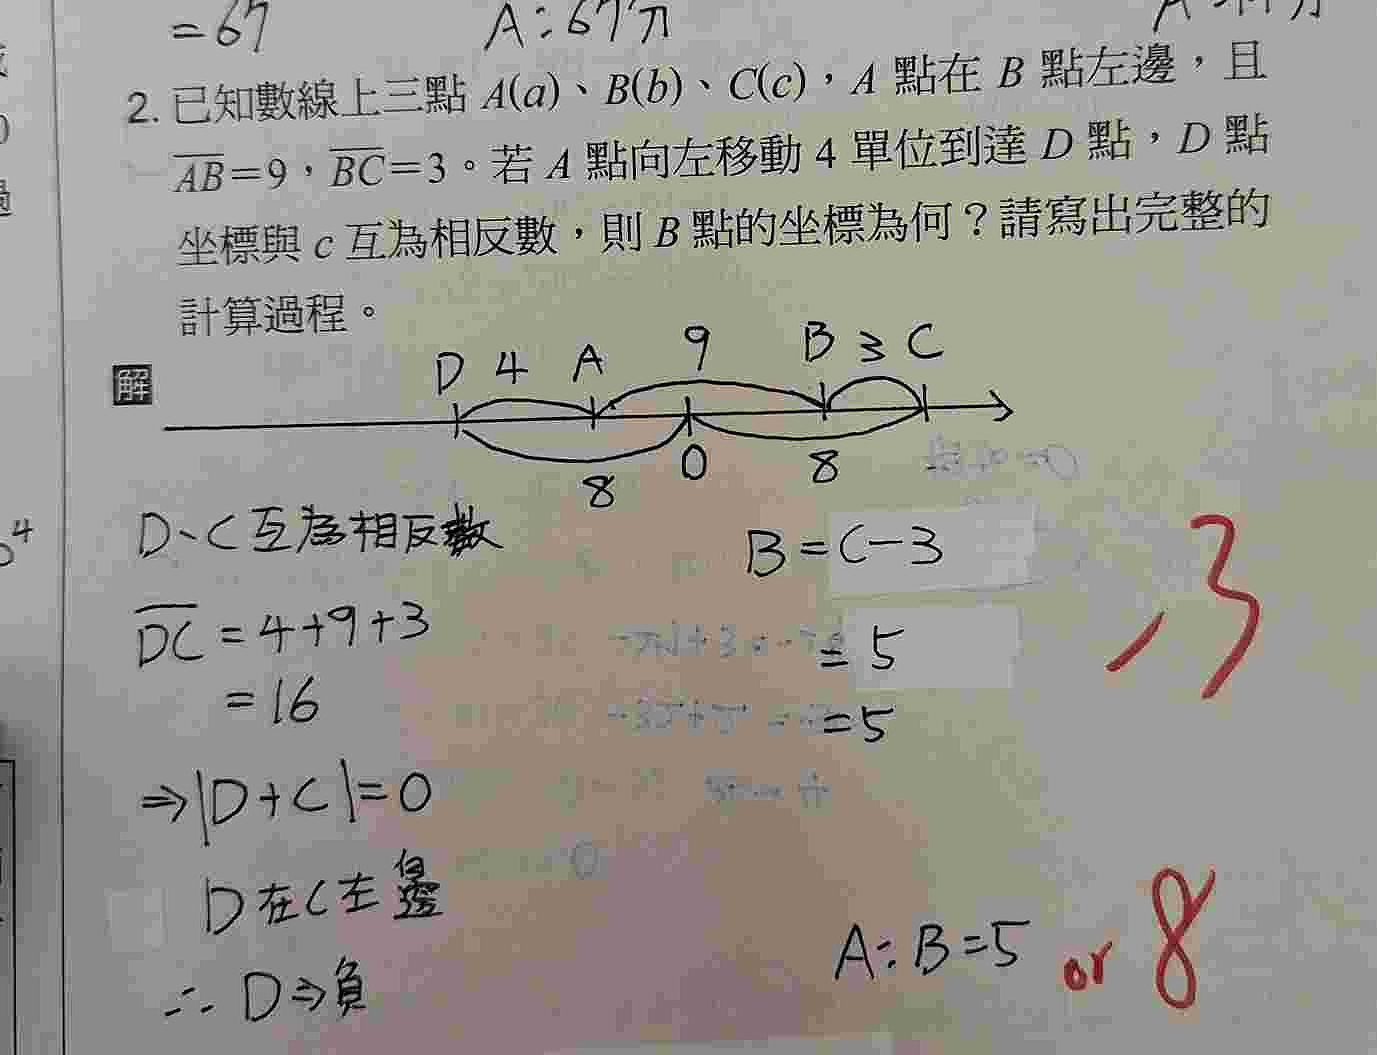 =67
A:67分
2. 已知數線上三點 A(a)、B(b)、C(c),A 點在 B 點左邊,且
AB=9,BC=3。若 A 點向左移動 4 單位到達 D 點,D 點
坐標與 c 互為相反數,則 B 點的坐標為何?請寫出完整的
計算過程。
解
D 4 A 9 B 3 C
8 0 8
D、C互為相反數
B=C-3
DC=4+9+3
=5
=16
=5
⇒|D+C|=0
D在C左邊
∴D⇒負
A:B=5 or 8
,3